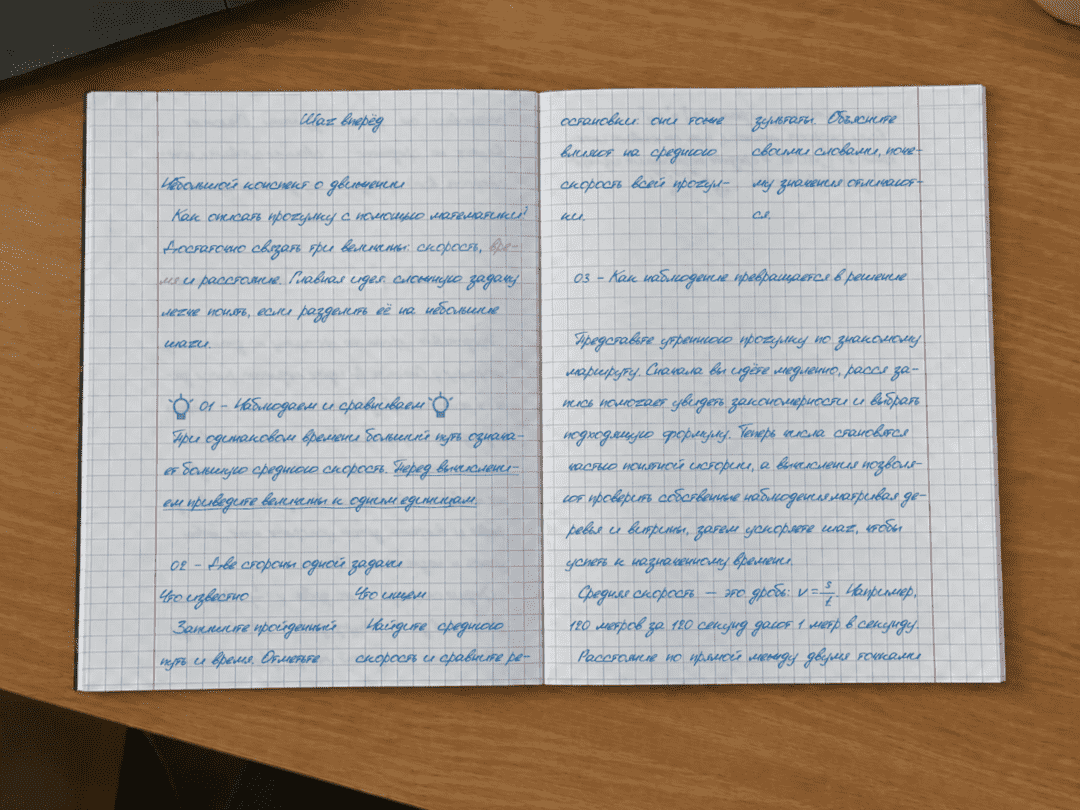 Шаг вперёд
Небольшой конспект о движении
Как описать прогулку с помощью математики?
Достаточно связать три величины: скорость, вре-
мя и расстояние. Главная идея: сложную задачу
легче понять, если разделить её на небольшие
шаги.
01 – Наблюдаем и сравниваем
При одинаковом времени больший путь означа-
ет большую среднюю скорость. Перед вычислени-
ем приведите величины к одним единицам.
02 – Две стороны одной задачи
Что известно
Запишите пройденный
путь и время. Отметьте
остановки: они тоже
влияют на среднюю
скорость всей прогул-
ки.
Что ищем
Найдите среднюю
скорость и сравните ре-
зультаты. Объясните
своими словами, поче-
му значения отличают-
ся.
03 – Как наблюдение превращается в решение
Представьте утреннюю прогулку по знакомому
маршруту. Сначала вы идёте медленно, расся за-
пись помогает увидеть закономерности и выбрать
подходящую формулу. Теперь числа становятся
частью понятной истории, а вычисления позволя-
ют проверить собственные наблюдения матривая де-
ревья и витрины, затем ускоряете шаг, чтобы
успеть к назначенному времени.
Средняя скорость — это дробь: v = s/t. Например,
120 метров за 120 секунд дают 1 метр в секунду.
Расстояние по прямой между двумя точками